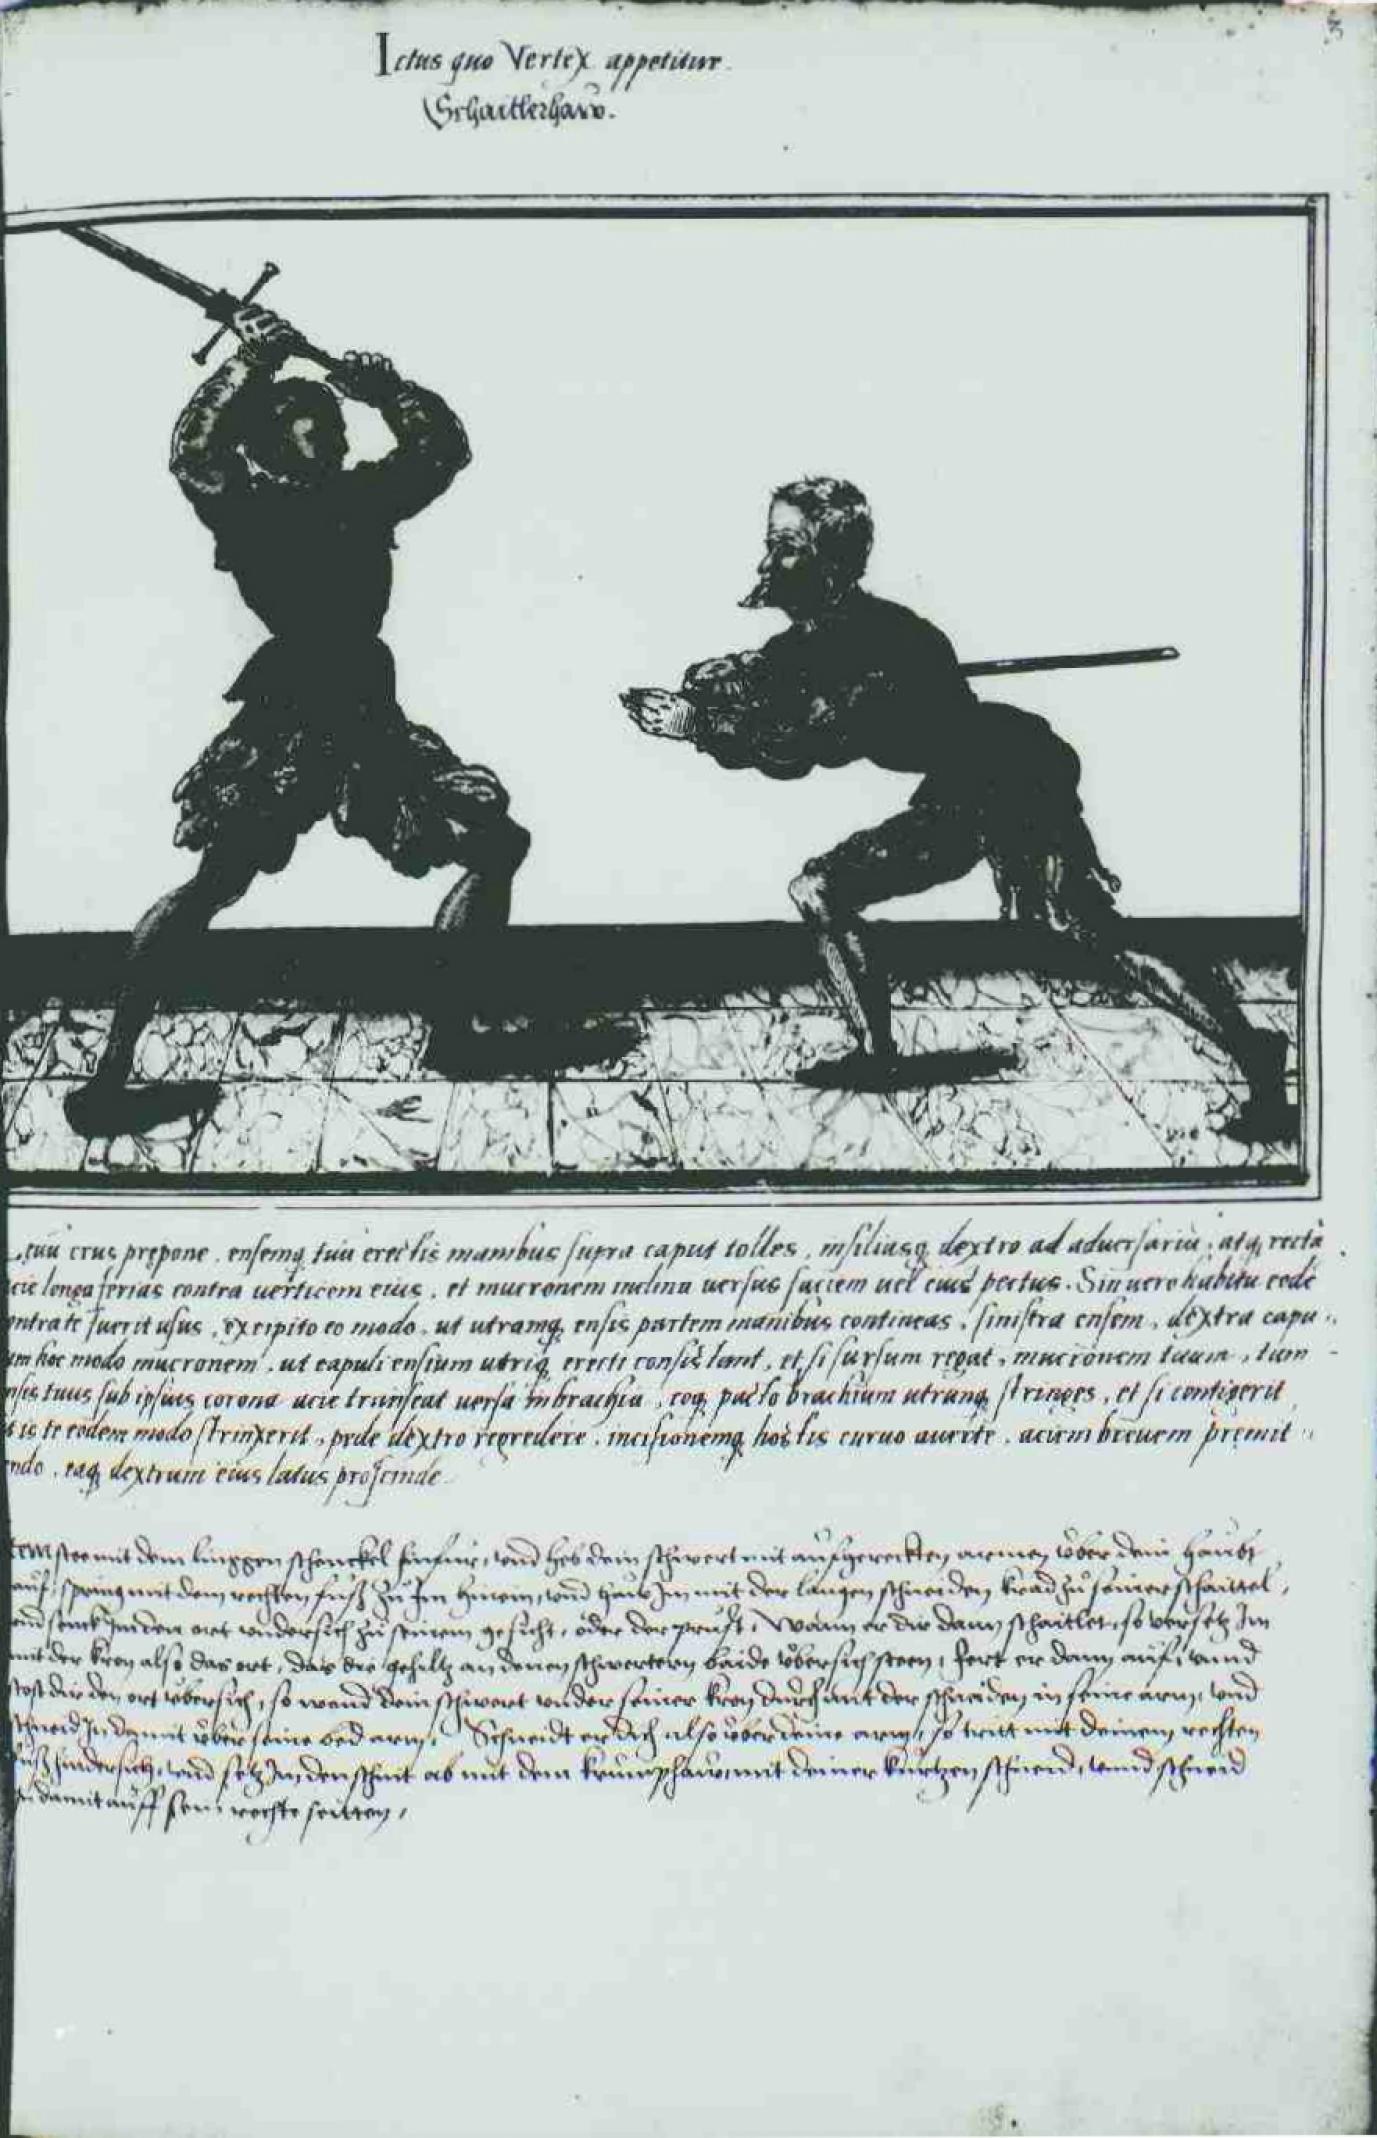 3
Ictus quo Vertex appetitur.
Schaitlerhaw.
Leuũ crus prępone, ensemq̨ tuũ erectis manibus supra caput tolles, insiliasq̨ dextro ad aduersariũ, atq̨ recta
acie longa ferias contra uerticem eius, et mucronem inclina uersus faciem uel eius pectus. Sin uero habitu eodẽ
contra te fuerit usus, excipito eo modo, ut utramq̨ ensis partem manibus contineas, sinistra ensem, dextra capu
hoc modo mucronem, ut capuli ensium utriq̨ erecti consistant, et si sursum regat, mucronem tuum, tum
ensis tuus sub ipsius corona acie transeat uersa in brachia, eoq̨ pacto brachium utrunq̨ stringes, et si contigerit
ut is te eodem modo strinxerit, pede dextro regredere, incisionemq̨ hostis curuo auerte, aciem breuem premit
endo, eaq̨ dextrum eius latus proscinde
Item stee mit dem linggen schenckel hinfür, vnd heb dein schwert mit aufgereckten armen vber dein haubt
auf, spring mit dem rechten fuß zu Im hinein, vnd haw Im mit der langen schneiden krad zu seiner schaittel,
vnd senck Im den ort vndersich zu seinem gesicht, oder der prust, Wann er dir dann schaitlet, so versetz Im
mit der kron also das ort, das die gehiltz an denen schwertern baide vbersich steen, fert er dann auf, vnnd
stost dir den ort vbersich, so wend dein schwert vnder seiner kron durch mit der schneiden in seine arm, vnd
schneid In damit vber seine bed arm, Schneidt er dich also vber deine arm, so tritt mit deinem rechten
fuß hindersich, vnd setz Im den schnit ab mit dem krumphaw, mit deiner kurtzen schneid, vnnd schneid
In damit auff sein rechte seitten,